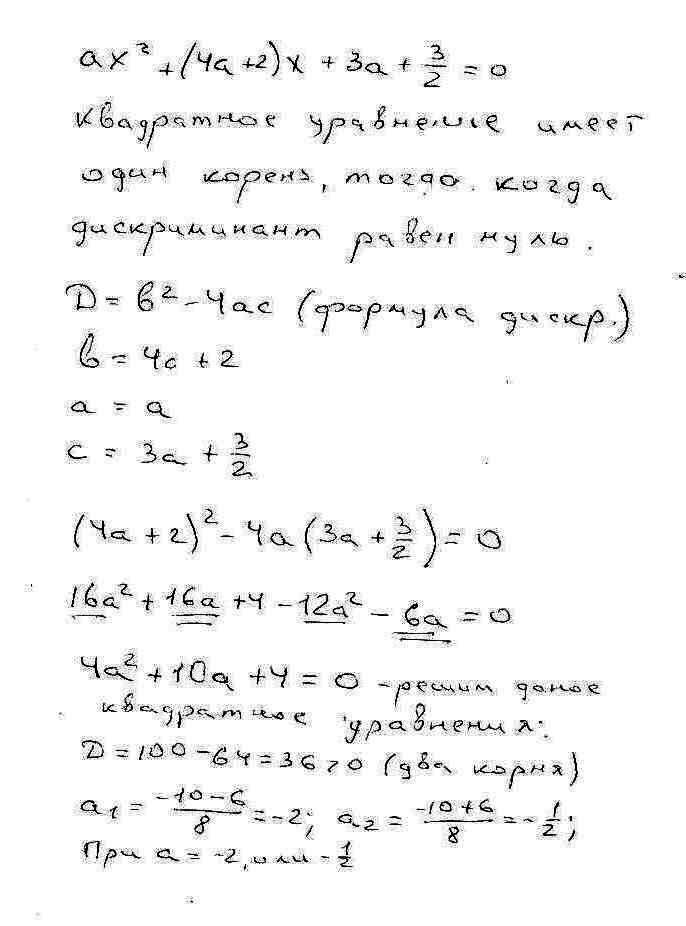 ax² + (4a + 2)x + 3a + 3/2 = 0
квадратное уравнение имеет
один корень, тогда. когда
дискриминант равен нуль.
D = b² - 4ac (формула дискр.)
b = 4a + 2
a = a
c = 3a + 3/2
(4a + 2)² - 4a(3a + 3/2) = 0
16a² + 16a + 4 - 12a² - 6a = 0
4a² + 10a + 4 = 0 - решим даное
квадратное уравнения:
D = 100 - 64 = 36 > 0 (два корня)
a₁ = (-10 - 6)/8 = -2; a₂ = (-10 + 6)/8 = -1/2;
При a = -2, или -1/2